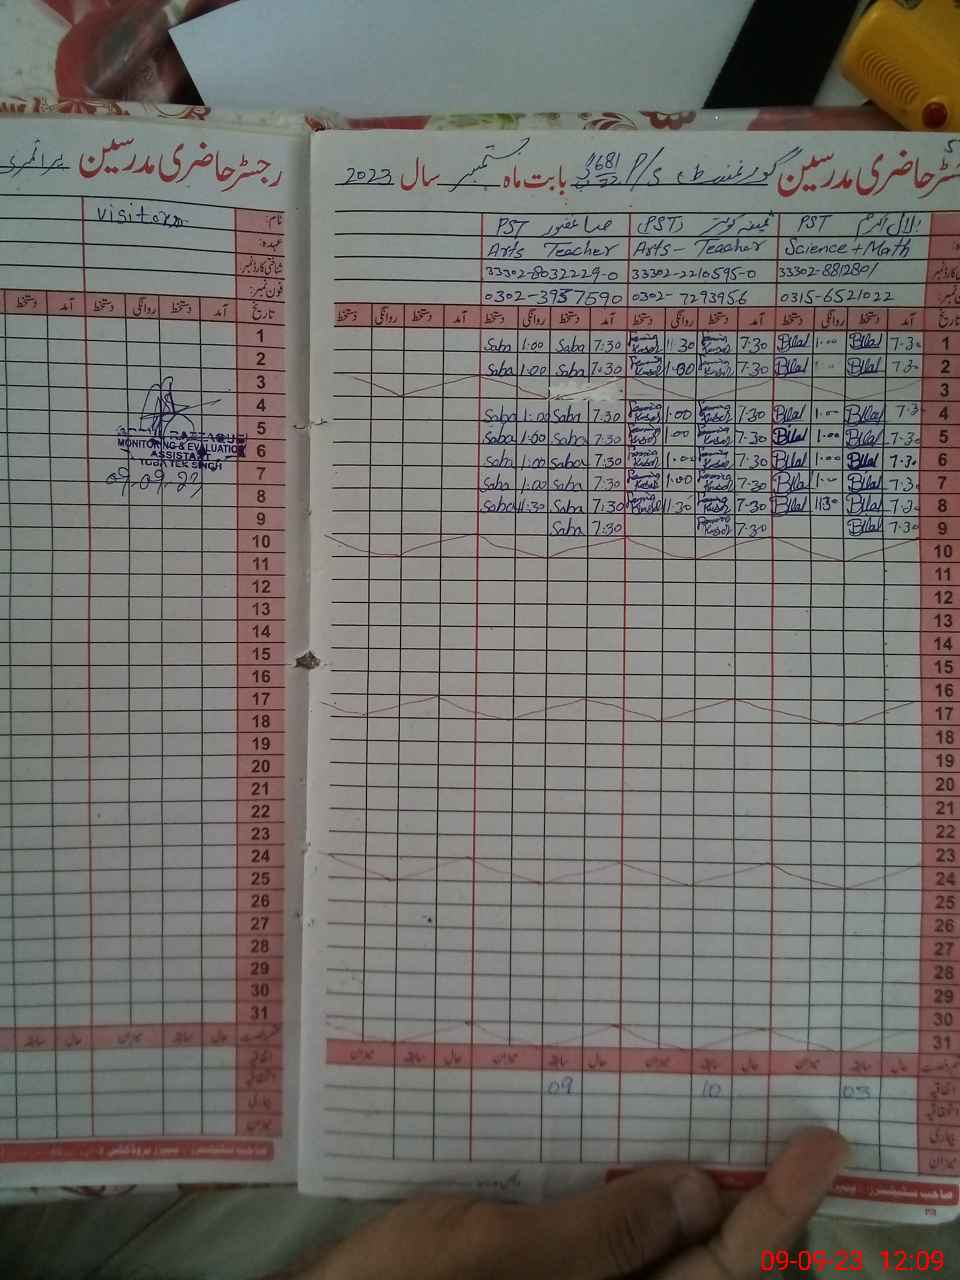 رجسٹر حاضری مدرسین گورنمنٹ P/S 681 بابت ماہ ستمبر سال 2023
بلال اکرم PST ثمینہ کوثر (PST) صبا غفور PST
Science + Math Arts - Teacher Arts Teacher
33302-2210595-0 33302-8032229-0
0315-6521022 0302-7293956 0302-3957590
تاریخ آمد دستخط روانگی دستخط آمد دستخط روانگی دستخط آمد دستخط روانگی دستخط آمد دستخط روانگی دستخط
1 7.30 Bilal 1.00 Bilal 7.30 11.30 7:30 Saba 1:00 Saba
2 7.30 Bilal Bilal 7.30 1.00 7:30 Saba 1:00 Saba
3
4 7.30 Bilal 1.00 Bilal 7.30 1.00 7:30 Saba 1:00 Saba
5 7.30 Bilal 1.00 Bilal 7.30 1.00 7:30 Saba 1:00 Saba
6 7.30 Bilal 1.00 Bilal 7.30 1.00 7:30 Saba 1:00 Saba
7 7.30 Bilal 1.00 Bilal 7.30 1.00 7:30 Saba 1:00 Saba
8 7.30 Bilal 11.30 Bilal 7.30 11.30 7:30 Saba 11:30 Saba
9 7.30 Bilal 7.30 7:30 Saba
10
11
12
13
14
15
16
17
18
19
20
21
22
23
24
25
26
27
28
29
30
31
حال سابقہ میزان حال سابقہ میزان حال سابقہ میزان حال سابقہ میزان
اتفاقیہ 03 10 09
استحقاقیہ
بیماری
میزان
رجسٹر حاضری مدرسین پرائمری
نام: visitors
عہدہ:
شناختی کارڈ نمبر:
فون نمبر:
تاریخ آمد دستخط روانگی دستخط
1
2
3
4
5
6
7
8
9
10
11
12
13
14
15
16
17
18
19
20
21
22
23
24
25
26
27
28
29
30
31
MONITORING & EVALUATION
ASSISTANT
TOBA TEK SINGH
09.09.23
حال سابقہ میزان
اتفاقیہ
استحقاقیہ
بیماری
میزان
09-09-23 12:09